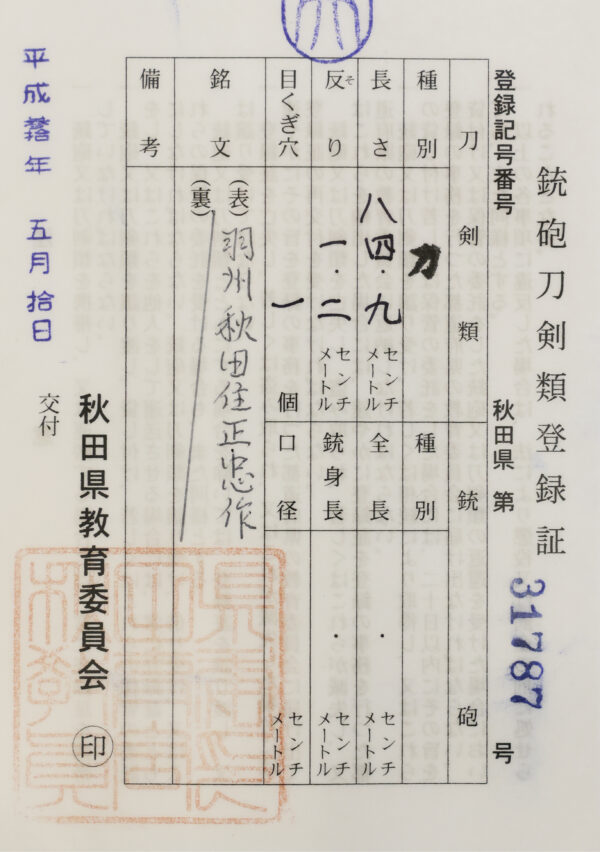 銃砲刀剣類登録証
登録記号番号 秋田県 第 31787 号
刀剣類 銃砲
種別 刀 種別
長さ 八四・九 センチメートル 全長 ・ センチメートル
反り そ 一・二 センチメートル 銃身長 ・ センチメートル
目くぎ穴 一 個 口径 センチメートル
銘文 (表) 羽州秋田住正忠作
(裏)
備考
秋田県教育委員会 ㊞
交付
平成 年 五月拾日